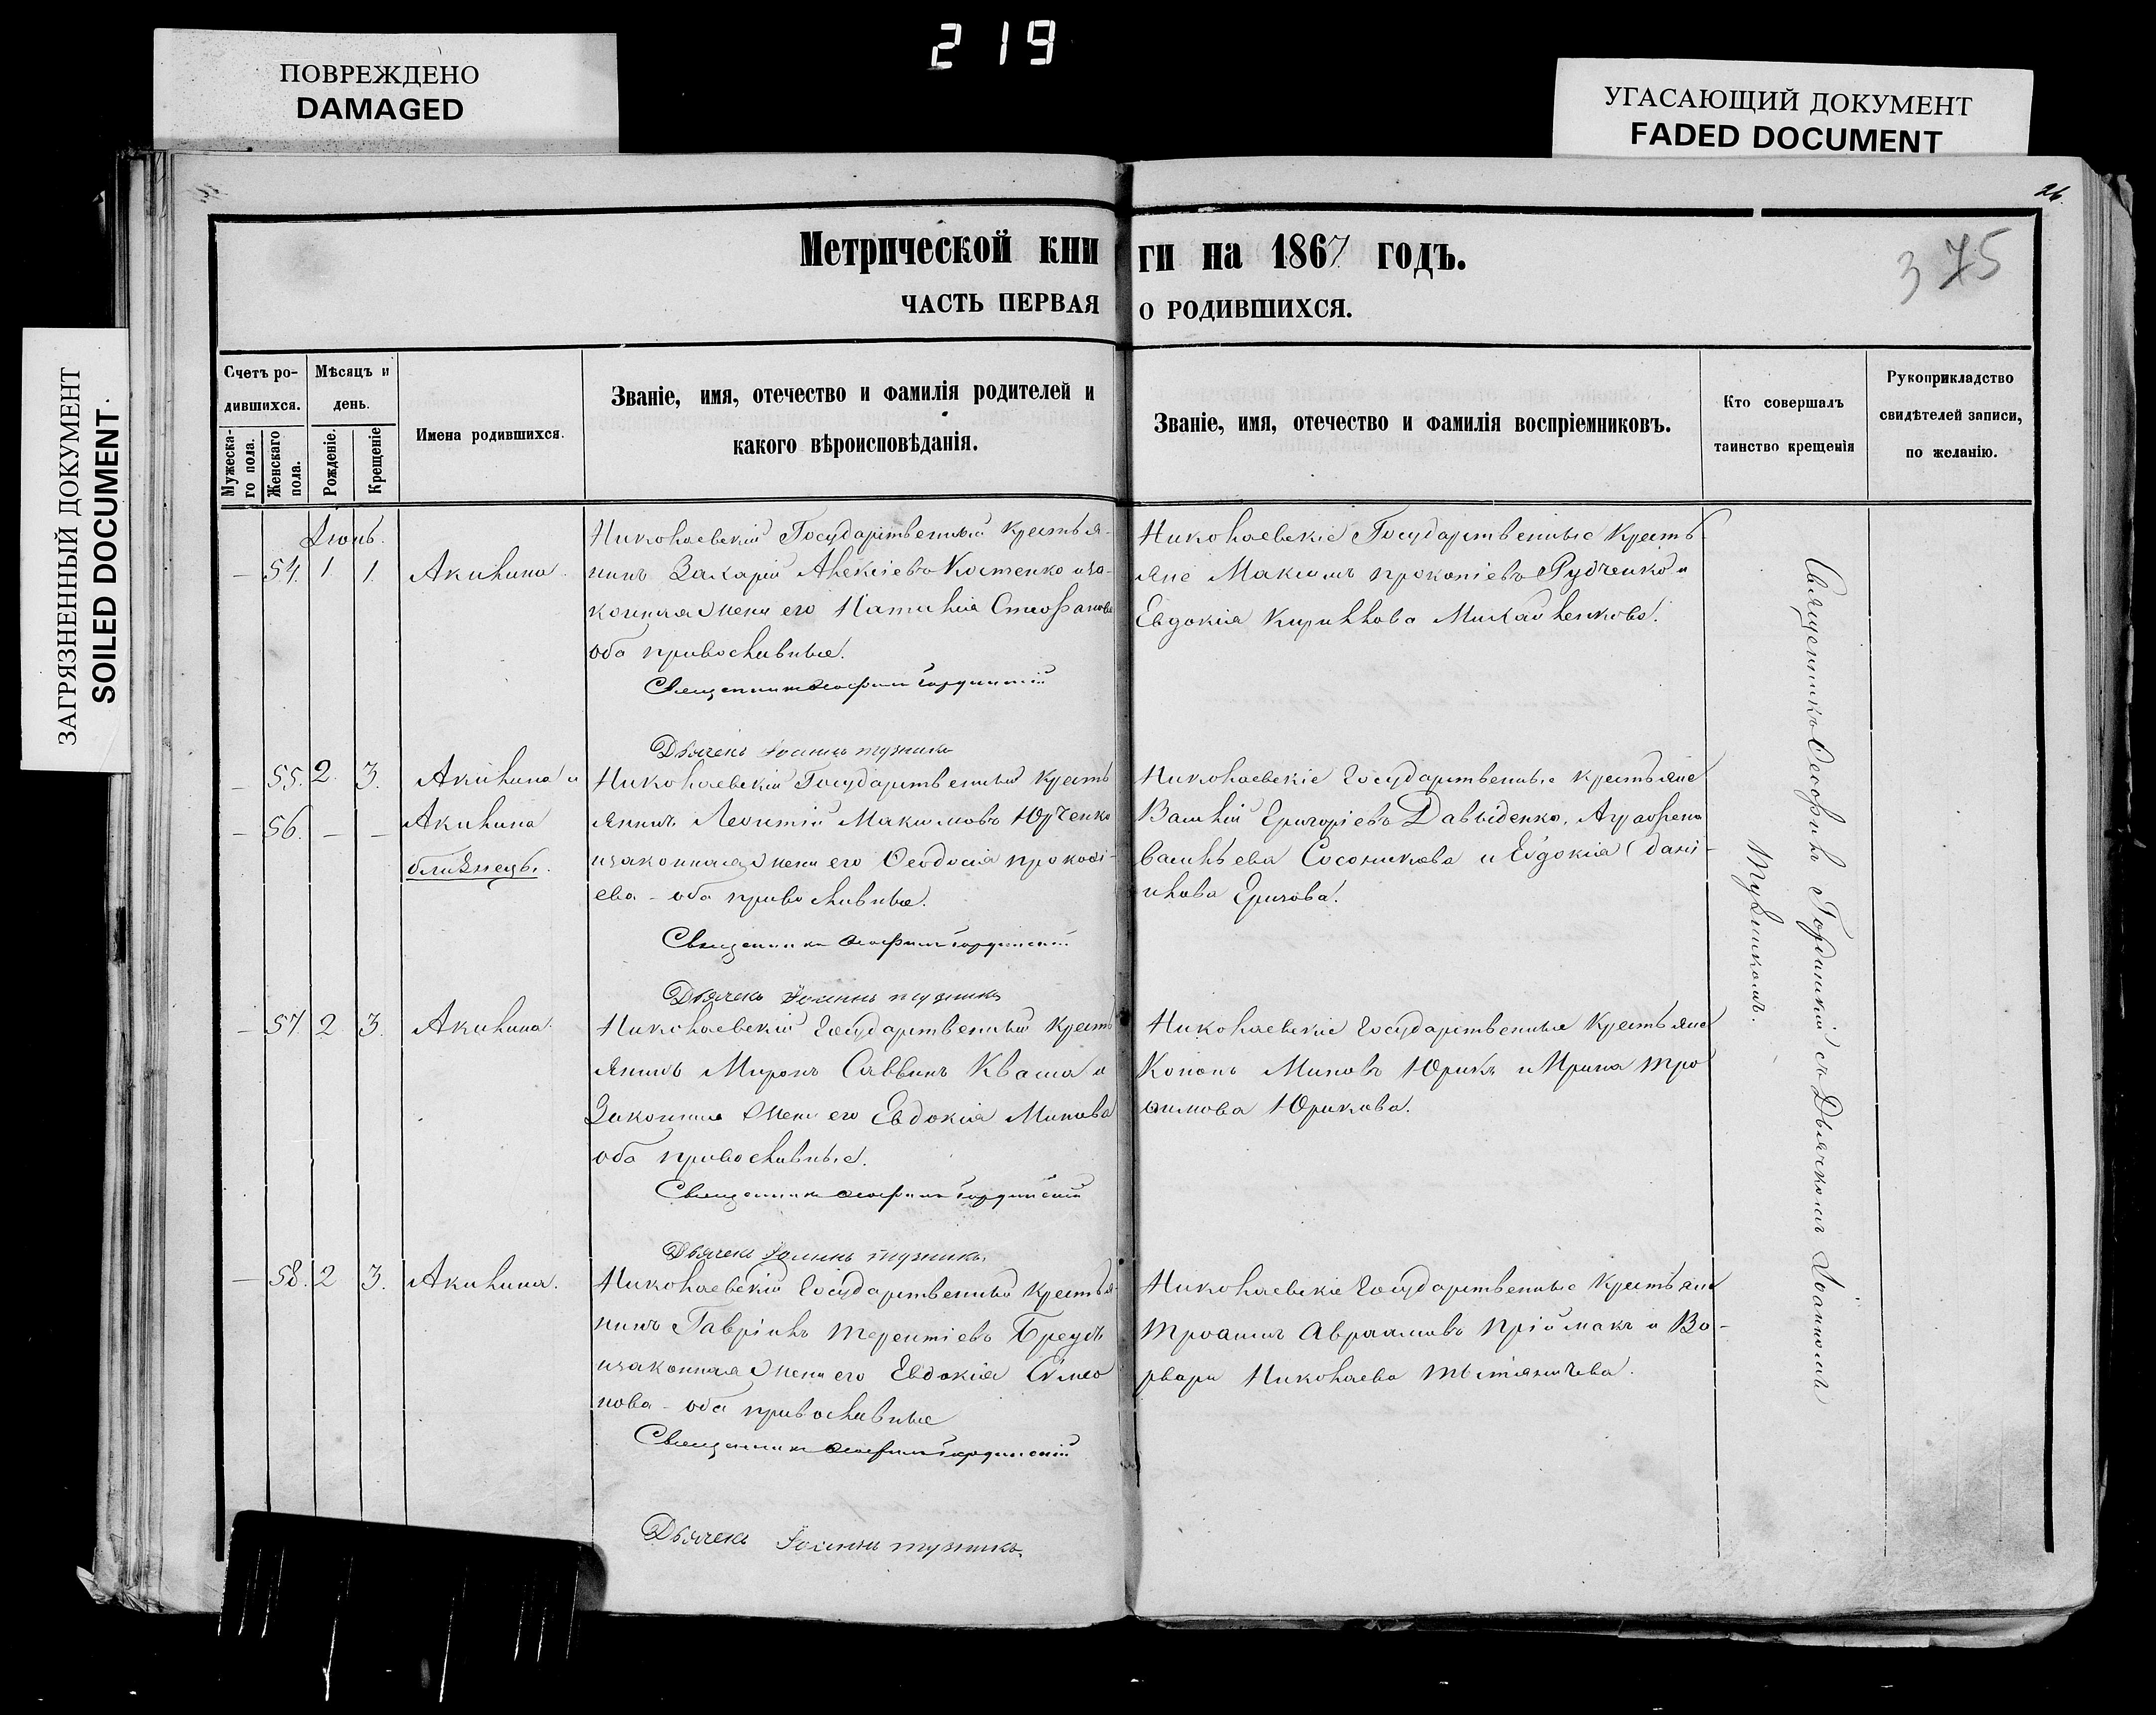 219
ПОВРЕЖДЕНО
DAMAGED
УГАСАЮЩИЙ ДОКУМЕНТ
FADED DOCUMENT
ЗАГРЯЗНЕННЫЙ ДОКУМЕНТ
SOILED DOCUMENT
26.
375
Метрической кни ги на 1867 годъ.
ЧАСТЬ ПЕРВАЯ О РОДИВШИХСЯ.
Счетъ ро-
дившихся.
Мужеска-
го пола.
Женскаго
пола.
Мѣсяцъ и
день.
Рожденіе.
Крещеніе
Имена родившихся.
Званіе, имя, отечество и фамилія родителей и
какого вѣроисповѣданія.
Званіе, имя, отечество и фамилія воспріемниковъ.
Кто совершалъ
таинство крещенія
Рукоприкладство
свидѣтелей записи,
по желанію.
Іюнь.
— 54. 1. 1. Акилина.
Николаевскій Государственный крестья-
нинъ Захарій Алексіевъ Костенко и за-
конная жена его Наталія Стефанова
оба православные.
Священникъ Ѳеофилъ Гординскій
Дьячекъ Іоаннъ Тузникъ
Николаевскіе Государственные Кресть-
яне Максимъ Прокопіевъ Рудченко и
Евдокія Кириллова Михайленкова.
— 55. 2. 3. Акилина и
— 56. — — Акилина
близнецы.
Николаевскій Государственный кресть
янинъ Леонтій Максимовъ Юрченко
и законная жена его Ѳеодосія Прокопі-
ева - оба православные.
Священникъ Ѳеофилъ Гординскій
Дьячекъ Іоаннъ Тузникъ
Николаевскіе Государственные крестьяне
Василій Григоріевъ Давыденко, Аграфена
Васильева Сосоникова и Евдокія Дані-
илова Ергиова.
— 57 2 3. Акилина.
Николаевскій Государственный кресть
янинъ Миронъ Саввинъ Кваша и
Законная жена его Евдокія Минова
оба православные.
Священникъ Ѳеофилъ Гординскій
Дьячекъ Іоаннъ Тузникъ.
Николаевскіе Государственные Крестьяне
Кононъ Миновъ Юрикъ и Ирина Тро
фимова Юрикова.
— 58. 2 3. Акилина.
Николаевскій Государственный Крестья-
нинъ Гавріилъ Терентіевъ
и законная жена его Евдокія Симео
нова - оба православные
Священникъ Ѳеофилъ Гординскій
Дьячекъ Іоаннъ Тузникъ.
Николаевскіе Государственные Крестьяне
Трофимъ Авраамовъ Пріймакъ и Ва-
рвара Николаева
Священникъ Ѳеофилъ Гординскій съ Дьячкомъ Іоанномъ
Тузникомъ.